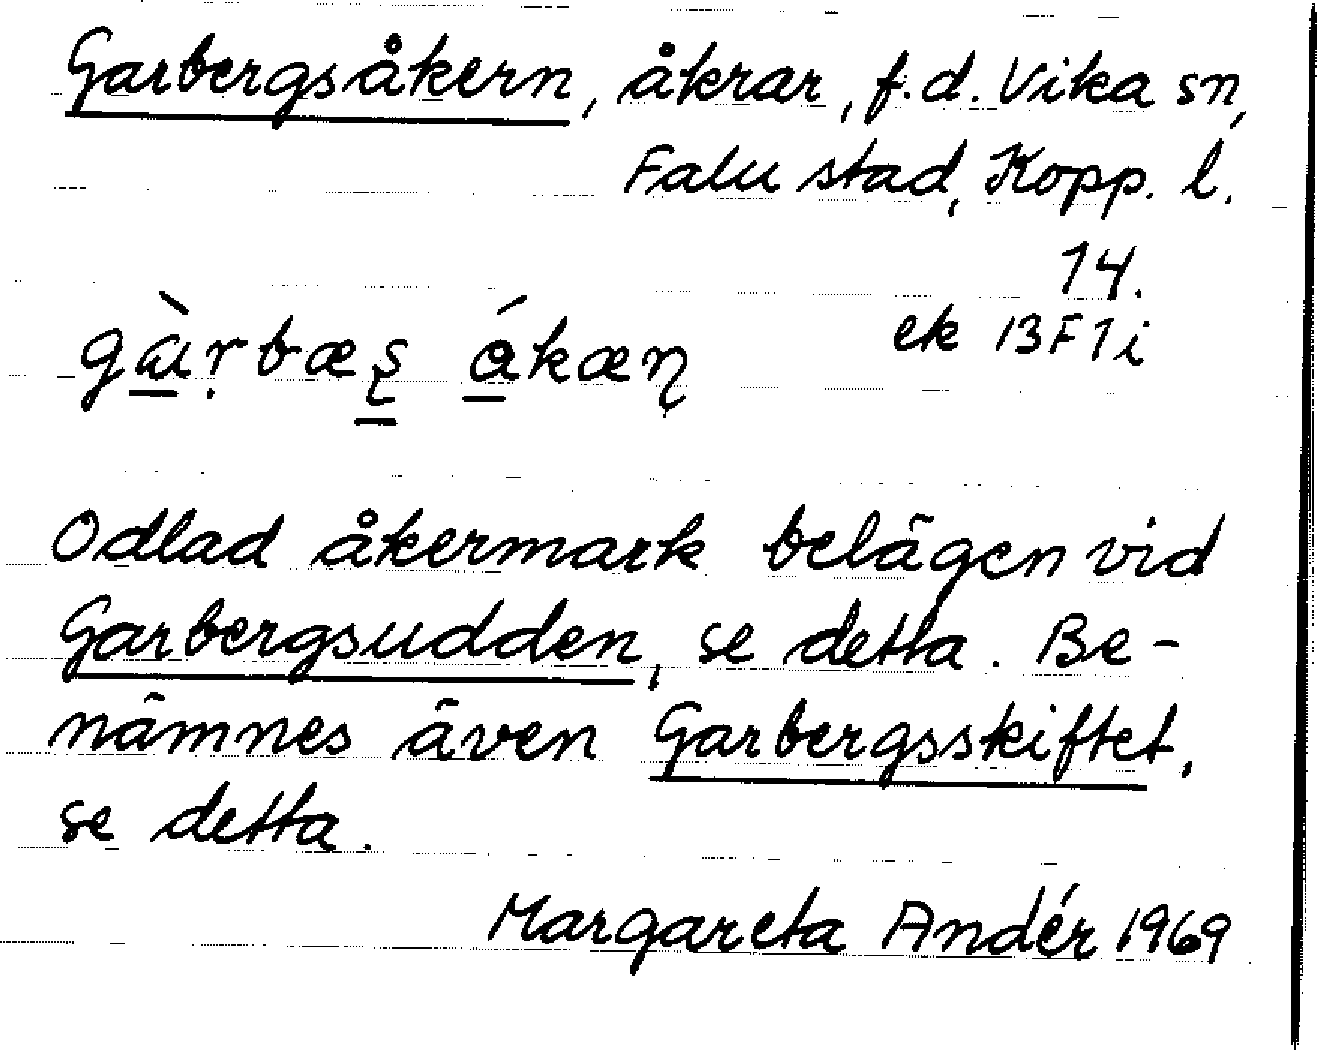 Garbergsåkern, åkrar, f.d. Vika sn,
Falu stad, Kopp. l.
14.
ek 13F7i
gàrbæʂ ákæɳ
Odlad åkermark belägen vid
Garbergsudden, se detta. Be-
nämnes även Garbergsskiftet,
se detta.
Margareta Andér 1969